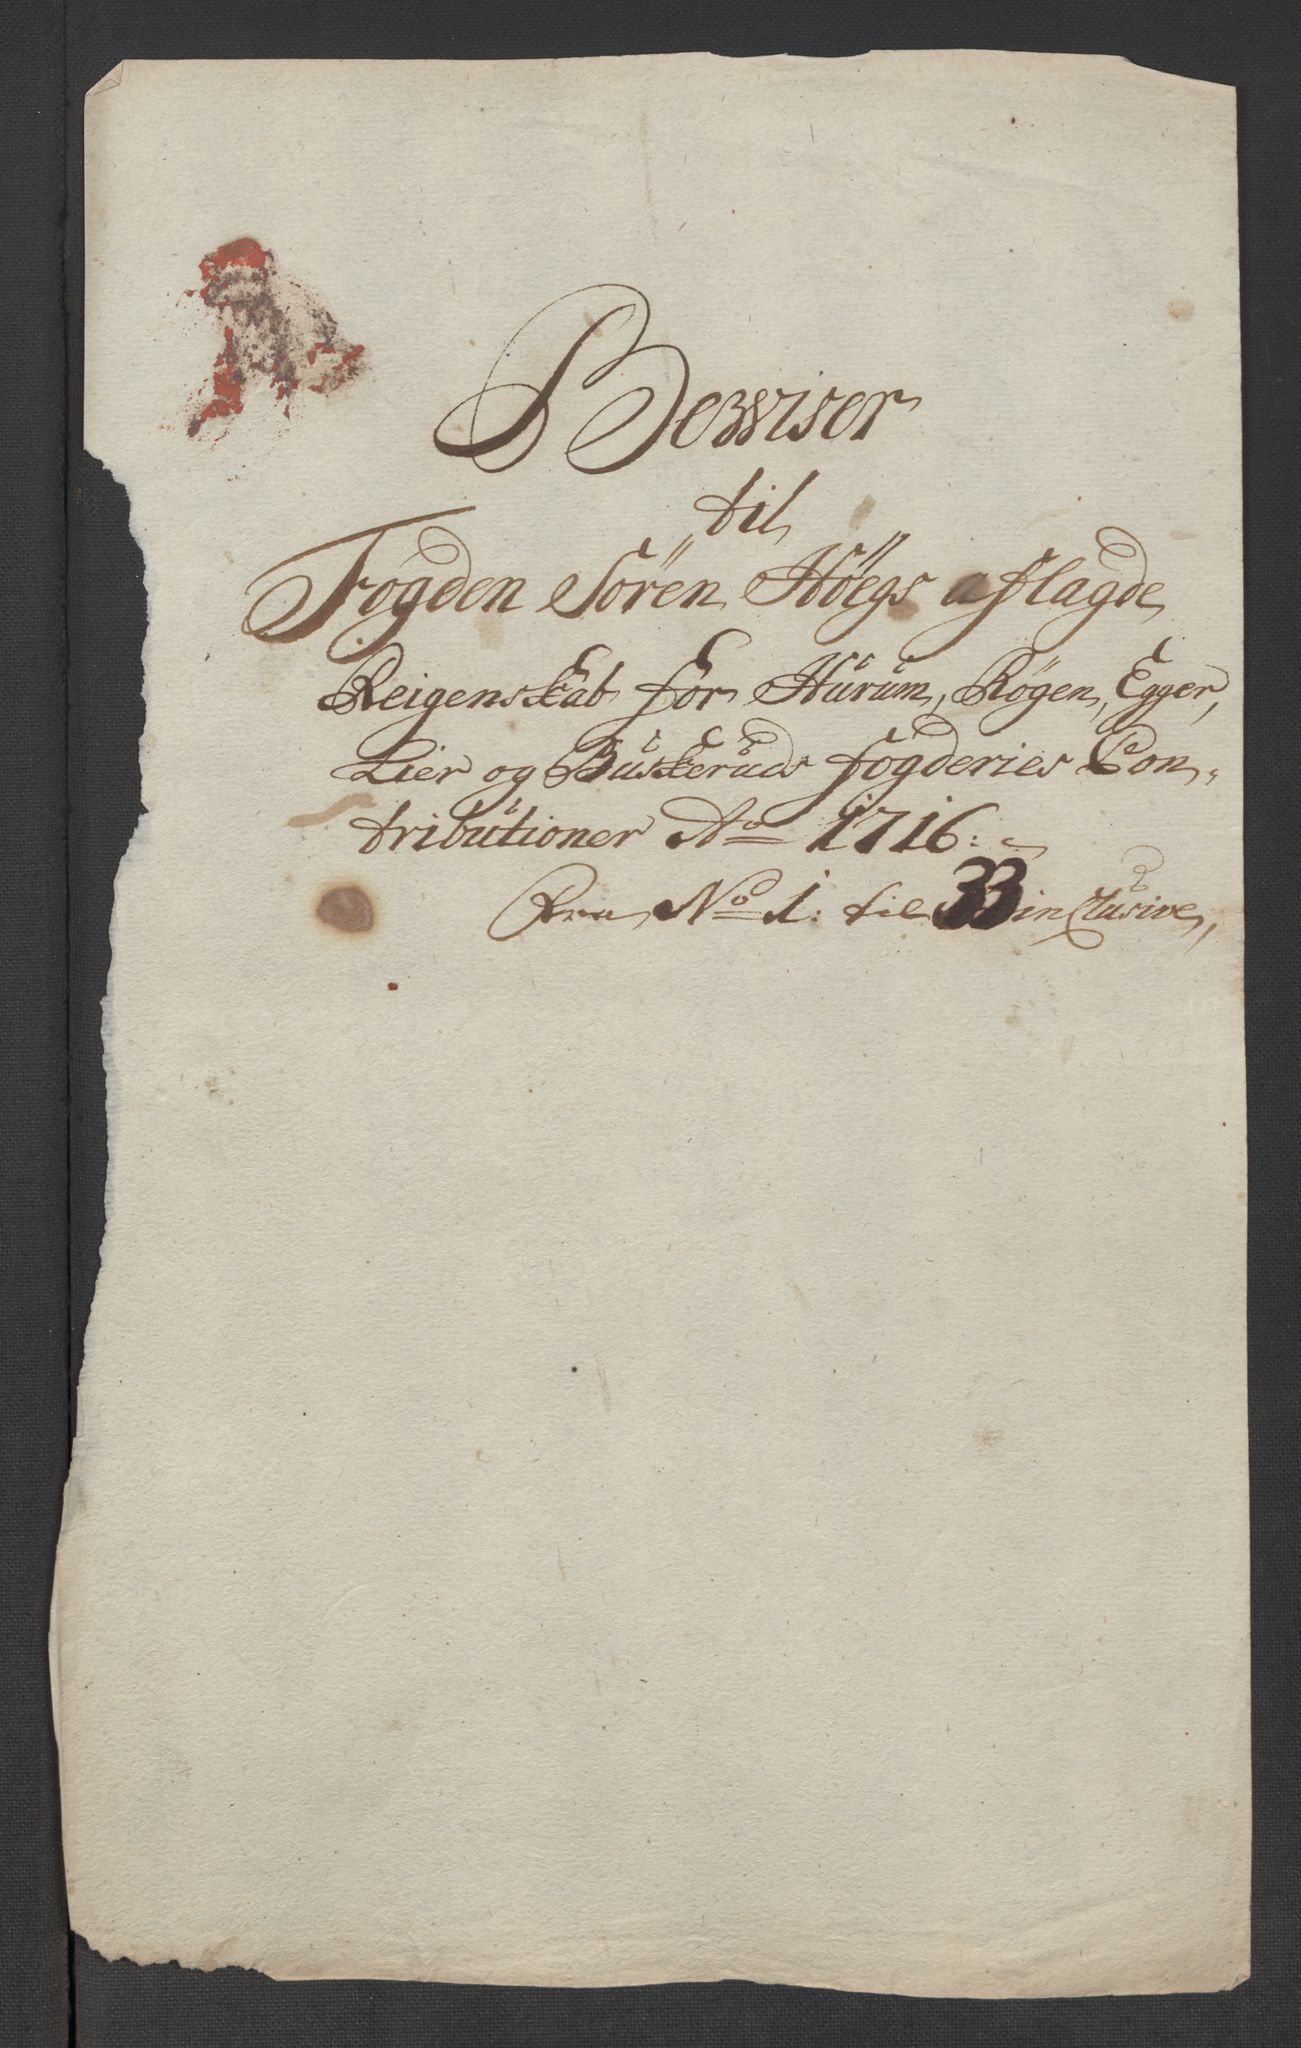 Bewiser
til
Fogden Sören Höegs aflagde
Reigenskab for Hurum, Rögen, Egger,
Lier og Buskeruds fogderies Con-
tributioner Ao 1716:
Fra No 1: til 33 inclusive,